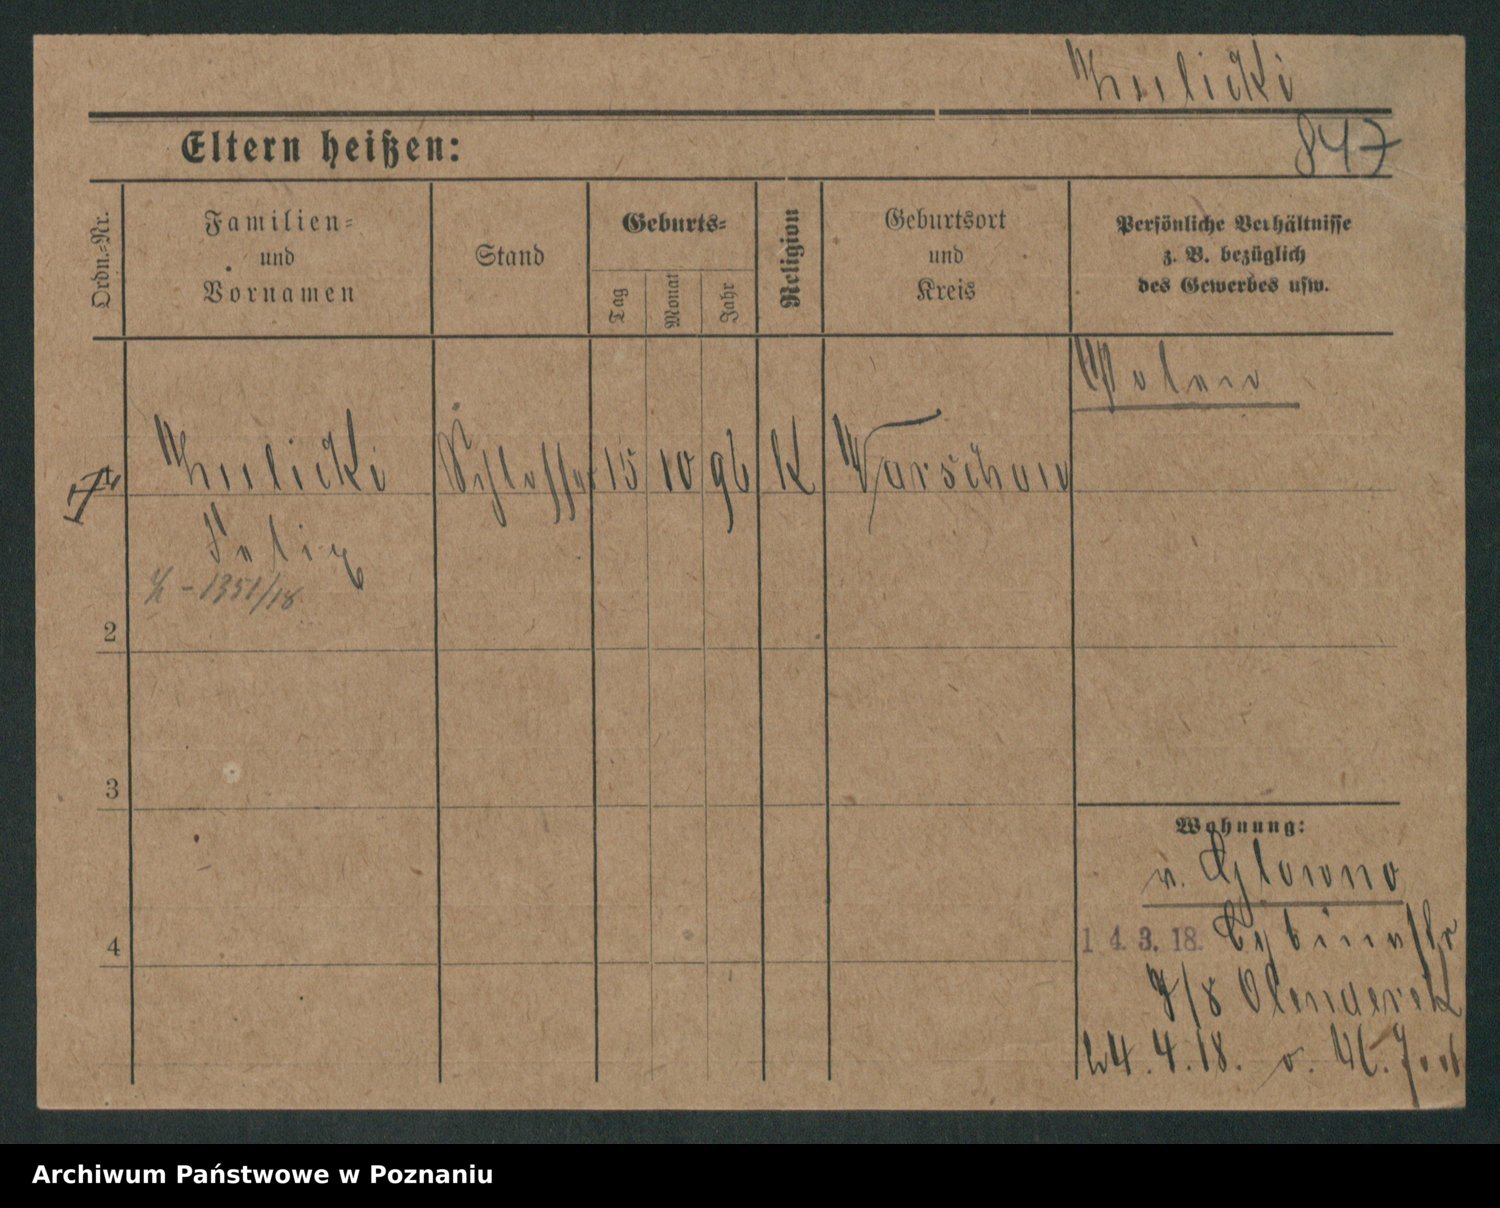 847
Eltern heißen:
Ordn.=Nr.
Familien=
und
Vornamen
Stand
Geburts=
Tag
Monat
Jahr
Religion
Geburtsort
und
Kreis
Persönliche Verhältnisse
z. B. bezüglich
des Gewerbes usw.
Polen
Schlosser 15 10 96 K Warschau
Felix
1351/18
2
3
4
Wohnung:
v. Glowno
14.3.18. Cybinastr
7/8 Olenderek
24.4.18. v.
Archiwum Państwowe w Poznaniu